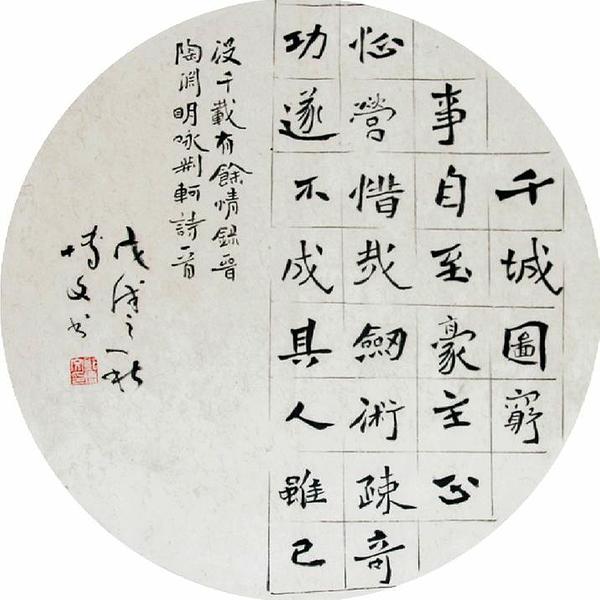 千城圖窮
事自至豪主正
怔營惜哉劒術疎奇
功遂不成其人雖已
没千載有餘情錄晉
陶渊明咏荆軻詩一首
戊戌之秋
博文书